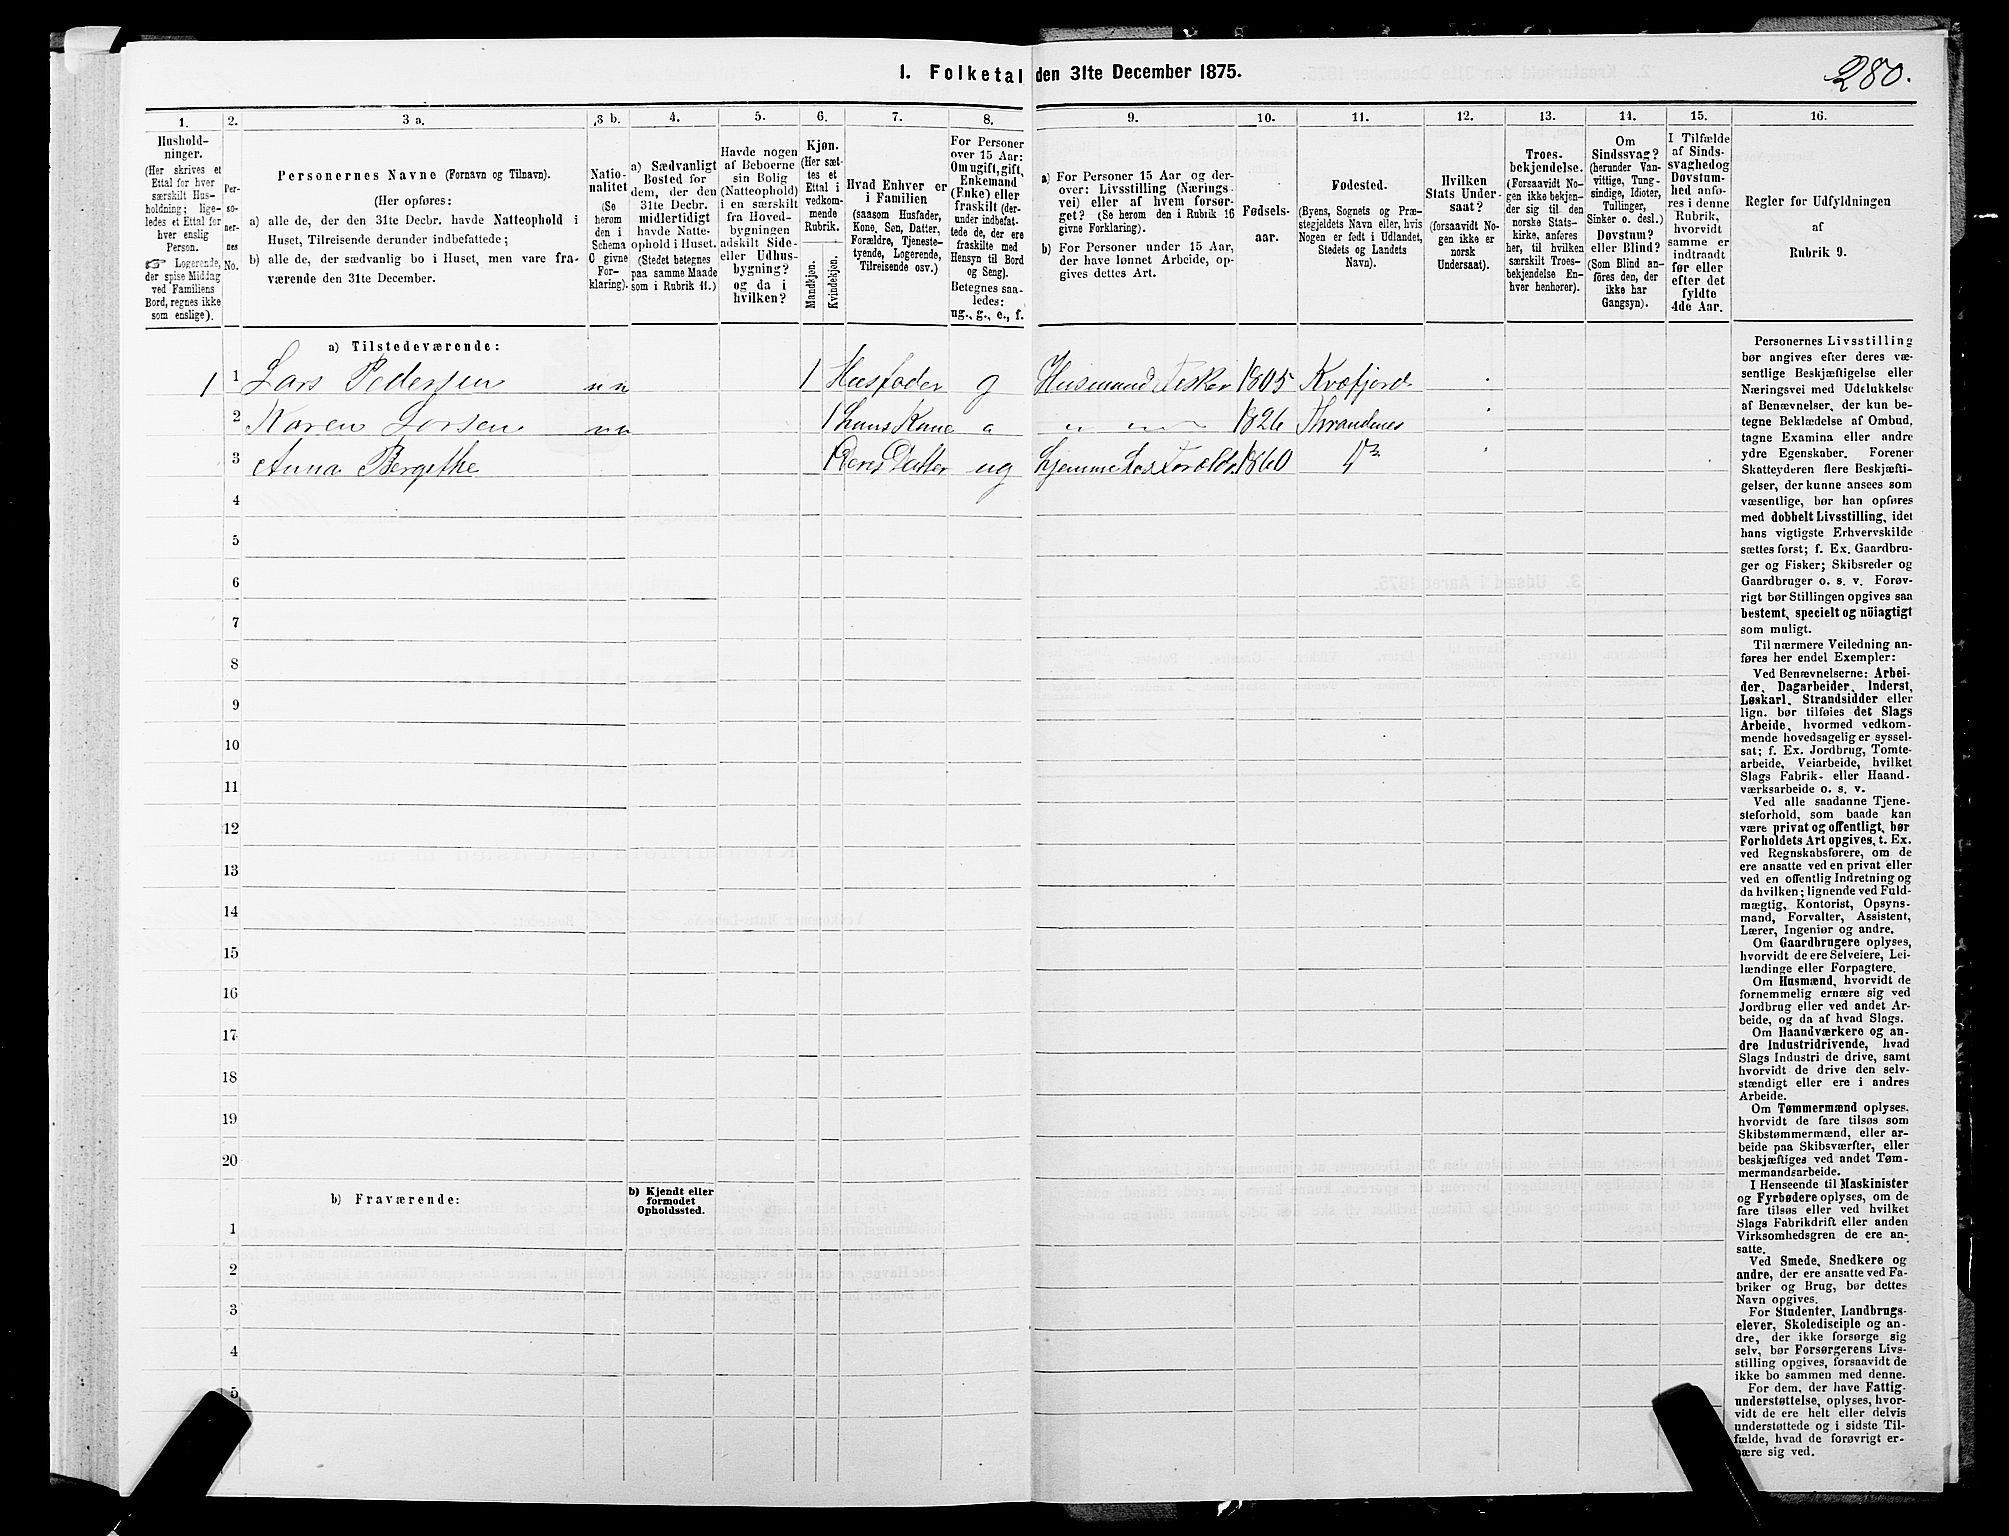 1. Folketal den 31te December 1875.
280.
1. 2. 3 a. 3 b. 4. 5. 6. 7. 8. 9. 10. 11. 12. 13. 14. 15. 16.
Hushold-
ninger.
(Her skrives et
Ettal for hver
særskilt Hus-
holdning; lige-
ledes et Ettal for
hver enslig
Person.
☞ Logerende,
der spise Middag
ved Familiens
Bord, regnes ikke
som enslige).
Per-
so-
ner-
nes
No.
Personernes Navne (Fornavn og Tilnavn).
(Her opføres:
a) alle de, der den 31te Decbr. havde Natteophold i
Huset, Tilreisende derunder indbefattede;
b) alle de, der sædvanlig bo i Huset, men vare fra-
værende den 31te December.
Natio-
nalitet
(Se
herom
den i
Schema
C givne
For-
klaring).
a) Sædvanligt
Bosted for
dem, der den
31te Decbr.
midlertidigt
havde Natte-
ophold i Huset.
(Stedet betegnes
paa samme Maade
som i Rubrik 11.)
Havde nogen
af Beboerne
sin Bolig
(Natteophold)
i en særskilt
fra Hoved-
bygningen
adskilt Side-
eller Udhus-
bygning?
og da i
hvilken?
Kjøn.
(Her sæt-
tes et
Ettal i
vedkom-
mende
Rubrik.
Mandkjøn.
Kvindekjøn.
Hvad Enhver er
i Familien
(saasom Husfader,
Kone, Søn, Datter,
Forældre, Tjeneste-
tyende, Logerende,
Tilreisende osv.)
For Personer
over 15 Aar:
Om ugift, gift,
Enkemand
(Enke) eller
fraskilt (der-
under indbefat-
tede de, der ere
fraskilte med
Hensyn til Bord
og Seng).
Betegnes saa-
ledes:
ug., g., e., f.
a) For Personer 15 Aar og der-
over: Livsstilling (Nærings-
vei) eller af hvem forsør-
get? (Se herom den i Rubrik 16
givne Forklaring).
b) For Personer under 15 Aar,
der have lønnet Arbeide, op-
gives dettes Art.
Fødsels-
aar.
Fødested.
(Byens, Sognets og Præ-
stegjeldets Navn eller, hvis
Nogen er født i Udlandet,
Stedets og Landets
Navn).
Hvilken
Stats Under-
saat?
(forsaavidt No-
gen ikke er
norsk
Undersaat).
Troes-
bekjendelse.
(Forsaavidt No-
gen ikke bekjen-
der sig til den
norske Stats-
kirke, anføres
her, til hvilken
særskilt Troes-
bekjendelse En-
hver henhorer).
Om
Sindssvag?
(herunder Van-
vittige, Tung-
sindige, Idioter,
Tullinger,
Sinker o. desl.)
Døvstum?
eller Blind?
(Som Blind an-
føres den, der
ikke har
Gangsyn).
I Tilfælde
af Sinds-
svaghed og
Døvstum-
hed anfø-
res i denne
Rubrik,
hvorvidt
samme er
indtraadt
før eller
efter det
fyldte
4de Aar.
Regler for Udfyldningen
af
Rubrik 9.
a) Tilstedeværende:
1 1 Lars Pedersen nn 1 Husfader g Husmand Fisker 1805 Kvæfjord
2 Karen Larsen nn 1 hans Kone g 1826 Thrandenes
3 Anna Bergithe 1 Deres Datter ug hjemme hos Foræld. 1860
4
5
6
7
8
9
10
11
12
13
14
15
16
17
18
19
20
b) Fraværende:
b) Kjendt eller
formodet
Opholdssted.
1
2
3
4
5
Personernes Livsstilling
bør angives efter deres væ-
sentlige Beskjæftigelse eller
Næringsvei med Udelukkelse
af Benævnelser, der kun be-
tegne Beklædelse af Ombud,
tagne Examina eller andre
ydre Egenskaber. Forener
Skatteyderen flere Beskjæfti-
gelser, der kunne ansees som
væsentlige, bør han opføres
med dobbelt Livsstilling, idet
hans vigtigste Erhvervskilde
sættes først; f. Ex. Gaardbru-
ger og Fisker; Skibsreder og
Gaardbruger o. s. v. Forøv-
rigt bør Stillingen opgives saa
bestemt, specielt og nöiagtigt
som muligt.
Til nærmere Veiledning an-
føres her endel Exempler:
Ved Benævnelserne: Arbei-
der, Dagarbeider, Inderst,
Løskarl, Strandsidder eller
lign. bør tilføies det Slags
Arbeide, hvormed vedkom-
mende hovedsagelig er syssel-
sat; f. Ex. Jordbrug, Tomte-
arbeide, Veiarbeide, hvilket
Slags Fabrik- eller Haand-
værksarbeide o. s. v.
Ved alle saadanne Tjene-
steforhold, som baade kan
være privat og offentligt, bør
Forholdets Art opgives, t. Ex.
ved Regnskabsførere, om de
ere ansatte ved en privat eller
ved en offentlig Indretning og
da hvilken; lignende ved Fuld-
mægtig, Kontorist, Opsyns-
mand, Forvalter, Assistent,
Lærer, Ingeniør og andre.
Om Gaardbrugere oplyses,
hvorvidt de ere Selveiere, Lei-
lændinge eller Forpagtere.
Om Husmænd, hvorvidt de
fornemmelig ernære sig ved
Jordbrug eller ved andet Ar-
beide, og da af hvad Slags.
Om Haandværkere og an-
dre Industridrivende, hvad
Slags Industri de drive, samt
hvorvidt de drive den selv-
stændigt eller ere i andres
Arbeide.
Om Tømmermænd oplyses,
hvorvidt de fare tilsøs som
Skibstømmermænd, eller ar-
beide paa Skibsværfter, eller
beskjæftiges ved andet Tøm-
mermandsarbeide.
I Henseende til Maskinister
og Fyrbødere oplyses, om de
fare tilsøs eller ved hvilket
Slags Fabrikdrift eller anden
Virksomhedsgren de ere an-
satte.
Ved Smede, Snedkere og
andre, der ere ansatte ved Fa-
briker og Brug, bør dettes
Navn opgives.
For Studenter, Landbrugs-
elever, Skoledisciple og an-
dre, der ikke forsørge sig
selv, bør Forsørgerens Livs-
stilling opgives, forsaavidt de
ikke bo sammen med denne.
For dem, der have Fattig-
understøttelse, oplyses, hvor-
vidt de ere helt eller delvis
understøttede og i sidste Til-
fælde, hvad de forøvrigt er-
nære sig ved.